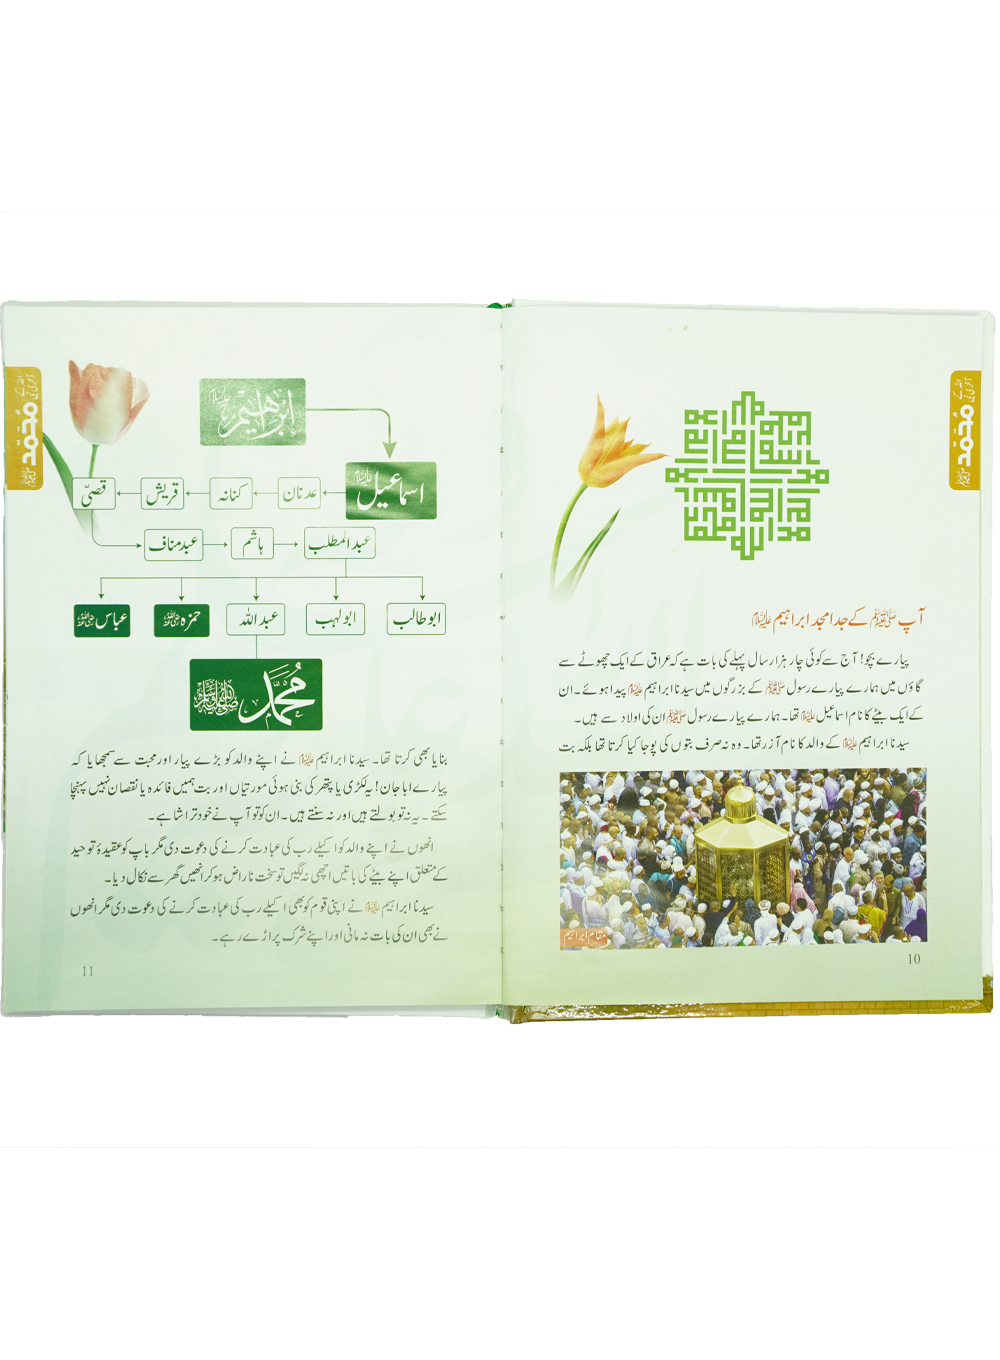 اللہ کے
آخری نبی
محمد ﷺ
آپ ﷺ کے جد امجد ابراہیم علیہ السلام
پیارے بچو! آج سے کوئی چار ہزار سال پہلے کی بات ہے کہ عراق کے ایک چھوٹے سے
گاؤں میں ہمارے پیارے رسول ﷺ کے بزرگوں میں سیدنا ابراہیم علیہ السلام پیدا ہوئے۔ ان
کے ایک بیٹے کا نام اسماعیل علیہ السلام تھا۔ ہمارے پیارے رسول ﷺ ان کی اولاد سے ہیں۔
سیدنا ابراہیم علیہ السلام کے والد کا نام آزر تھا۔ وہ نہ صرف بتوں کی پوجا کیا کرتا تھا بلکہ بت
مقام ابراہیم
10
اللہ کے
آخری نبی
محمد ﷺ
ابراهيم علیہ السلام
اسماعیل علیہ السلام
عدنان
کنانہ
قریش
قصیّ
عبدمناف
ہاشم
عبدالمطلب
ابوطالب
ابولہب
عبداللہ
حمزہ رضی اللہ عنہ
عباس رضی اللہ عنہ
مُحَمَّد صلى الله عليه وسلم
بنایا بھی کرتا تھا۔ سیدنا ابراہیم علیہ السلام نے اپنے والد کو بڑے پیار اور محبت سے سمجھایا کہ
پیارے ابا جان! یہ لکڑی یا پتھر کی بنی ہوئی مورتیاں اور بت ہمیں فائدہ یا نقصان نہیں پہنچا
سکتے۔ یہ نہ تو بولتے ہیں اور نہ سنتے ہیں۔ ان کو تو آپ نے خود تراشا ہے۔
انھوں نے اپنے والد کو اکیلے رب کی عبادت کرنے کی دعوت دی مگر باپ کو عقیدۂ توحید
کے متعلق اپنے بیٹے کی باتیں اچھی نہ لگیں تو سخت ناراض ہو کر انھیں گھر سے نکال دیا۔
سیدنا ابراہیم علیہ السلام نے اپنی قوم کو بھی اکیلے رب کی عبادت کرنے کی دعوت دی مگر انھوں
نے بھی ان کی بات نہ مانی اور اپنے شرک پر اڑے رہے۔
11